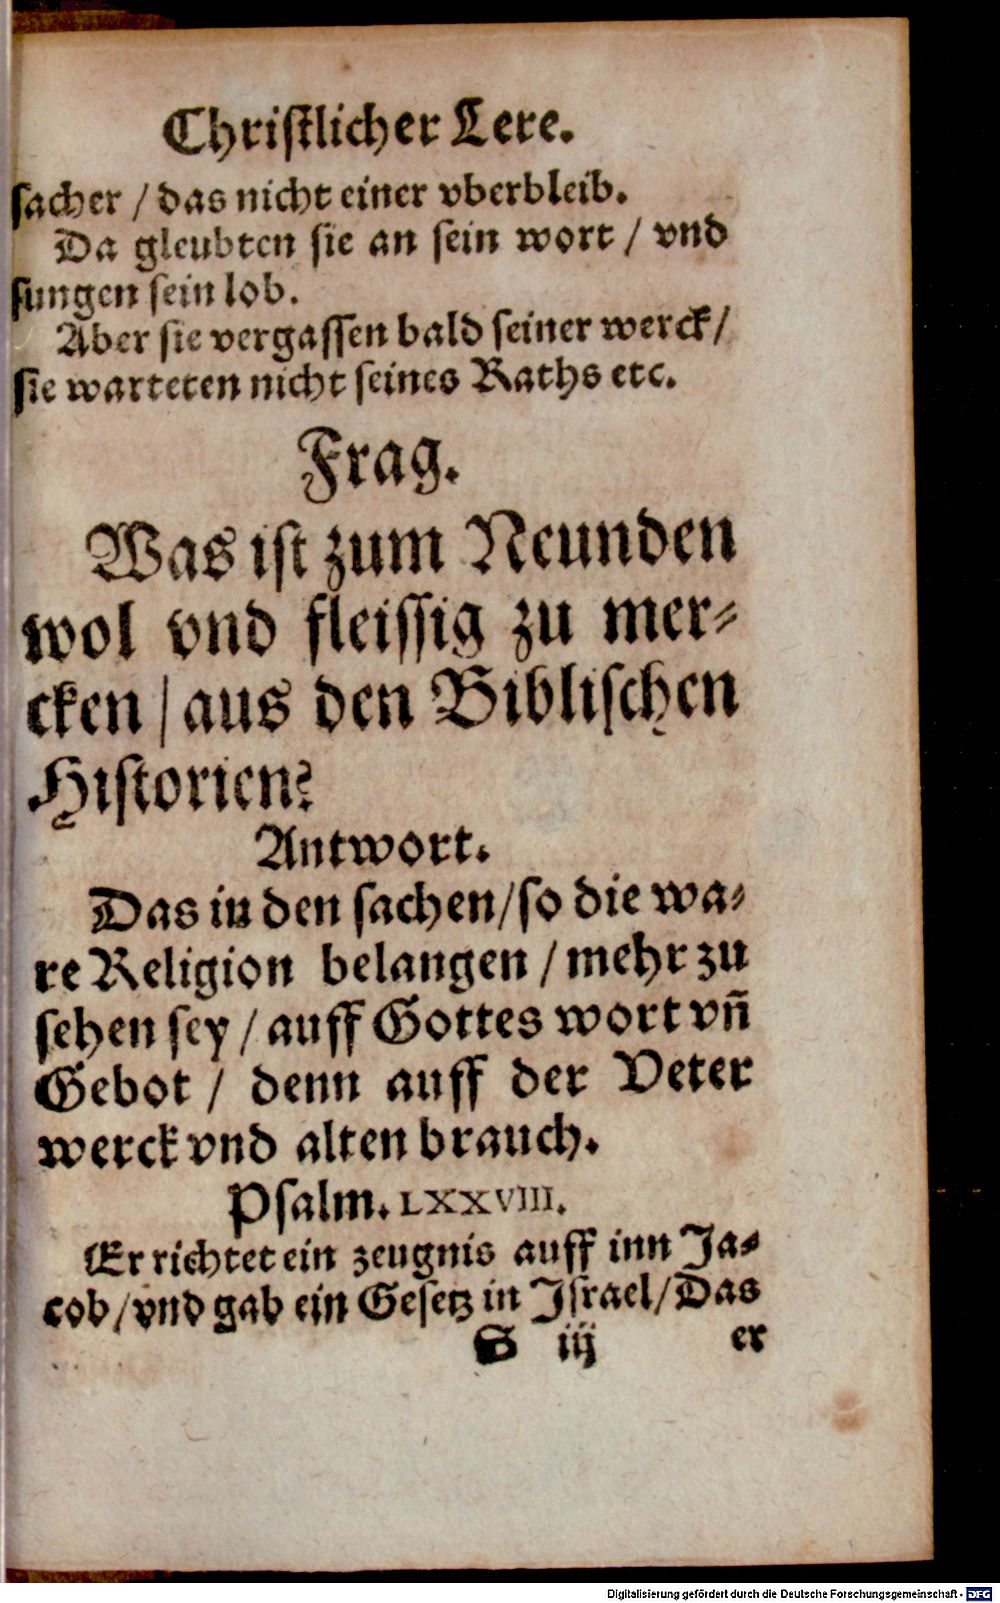 Christlicher Lere.
sacher / das nicht einer vberbleib.
Da gleubten sie an sein wort / vnd
sungen sein lob.
Aber sie vergassen bald seiner werck /
sie warteten nicht seines Raths etc.
Frag.
Was ist zum Neunden
wol vnd fleissig zu mer-
cken / aus den Biblischen
Historien?
Antwort.
Das in den sachen / so die wa-
re Religion belangen / mehr zu
sehen sey / auff Gottes wort vn̄
Gebot / denn auff der Veter
werck vnd alten brauch.
Psalm. LXXVIII.
Er richtet ein zeugnis auff inn Ja-
cob / vnd gab ein Gesetz in Jsrael / Das
S iij er
Digitalisierung gefördert durch die Deutsche Forschungsgemeinschaft - DFG